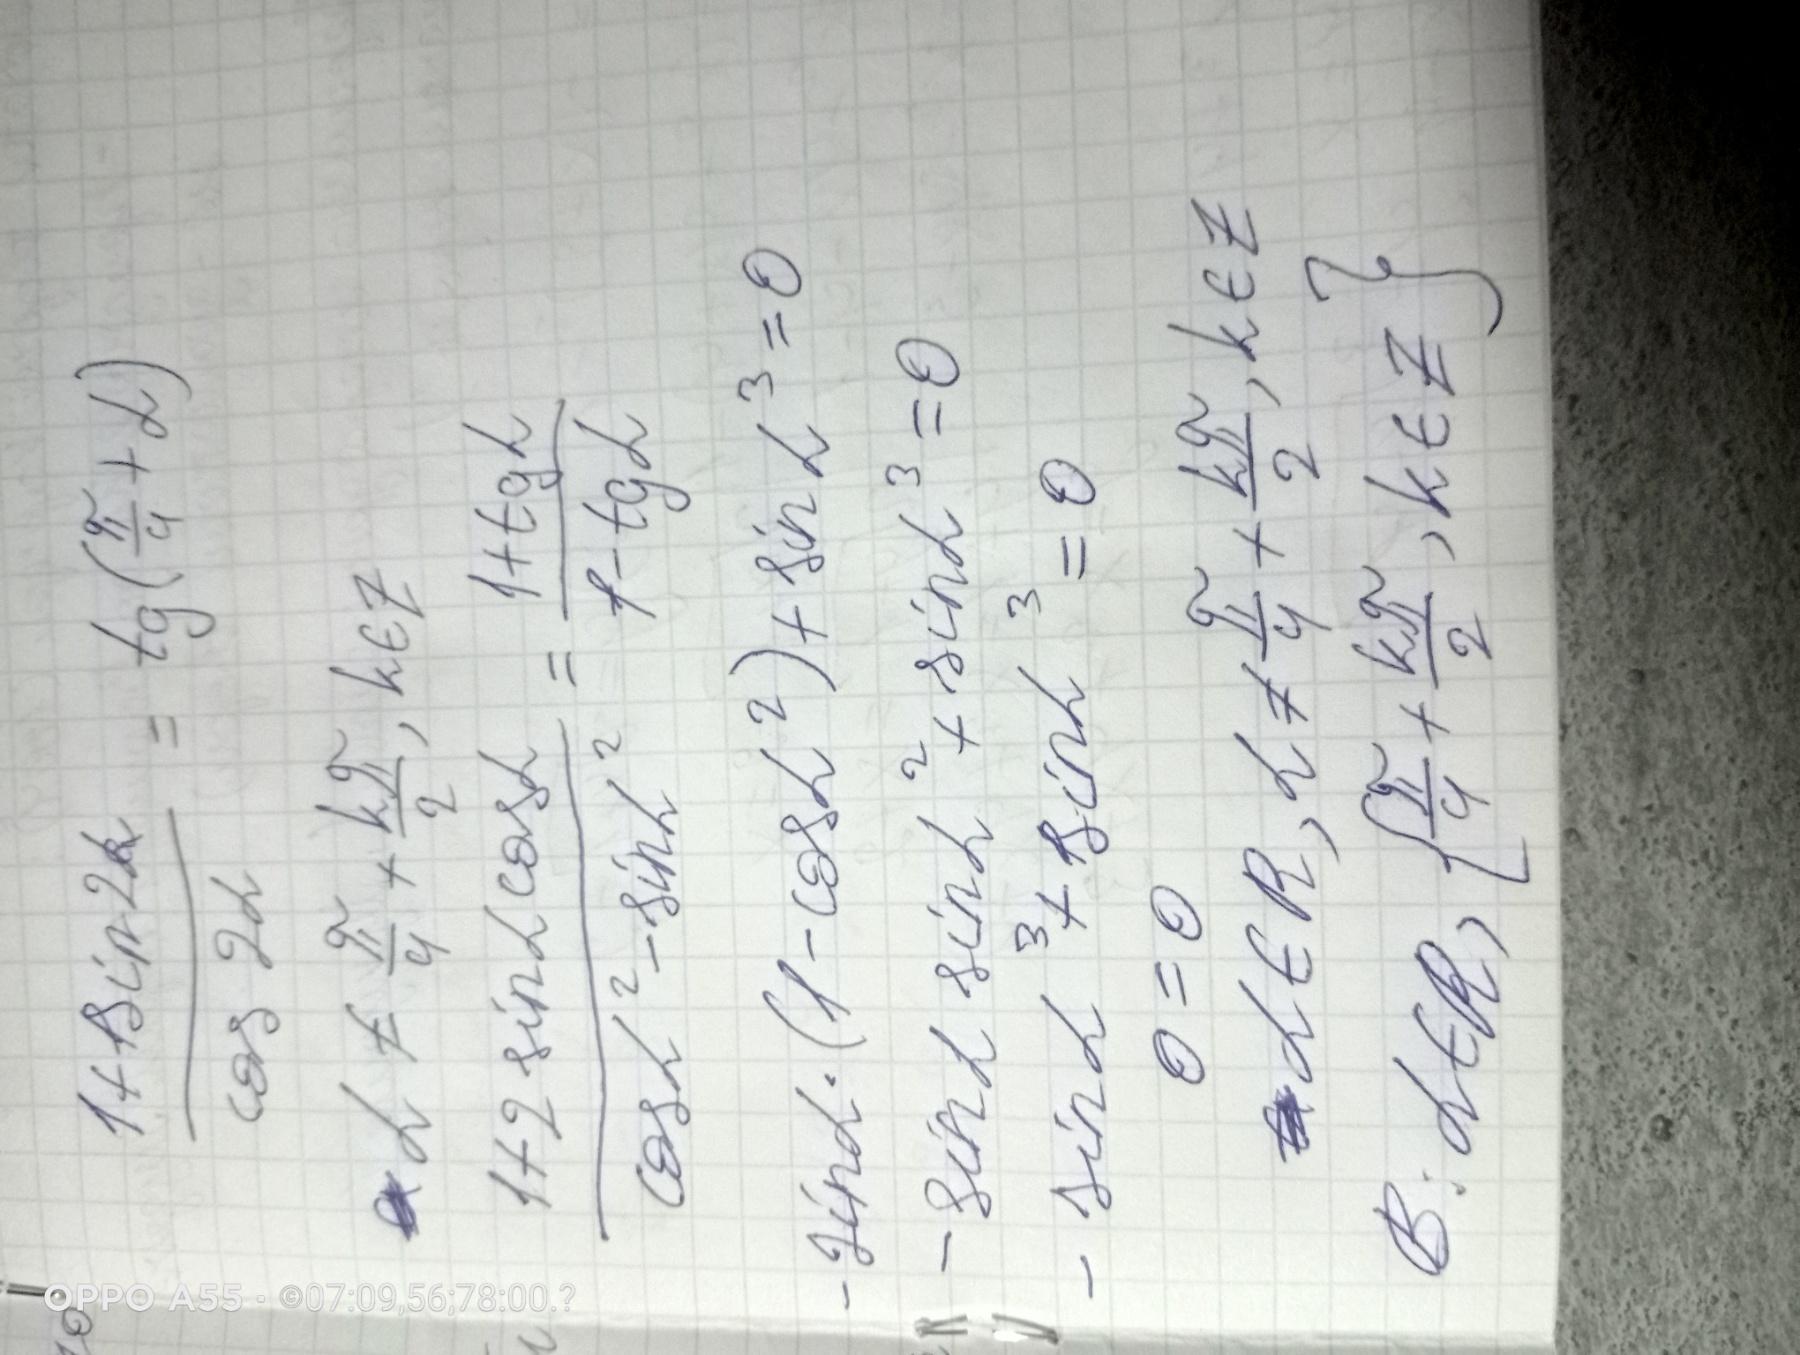 1+sin2α / cos 2α = tg(π/4 + α)
α ≠ π/4 + kπ/2, k∈Z
1+2 sinα cosα / cosα² - sinα² = 1+tgα / 1-tgα
-sinα·(1-cosα²)+sinα³=0
-sinα sinα²+sinα³=0
-sinα³+sinα³=0
0=0
α∈R, α≠π/4+kπ/2, k∈Z
В: α∈R, {π/4+kπ/2, k∈Z}
OPPO A55 · ©07:09,56;78:00.?